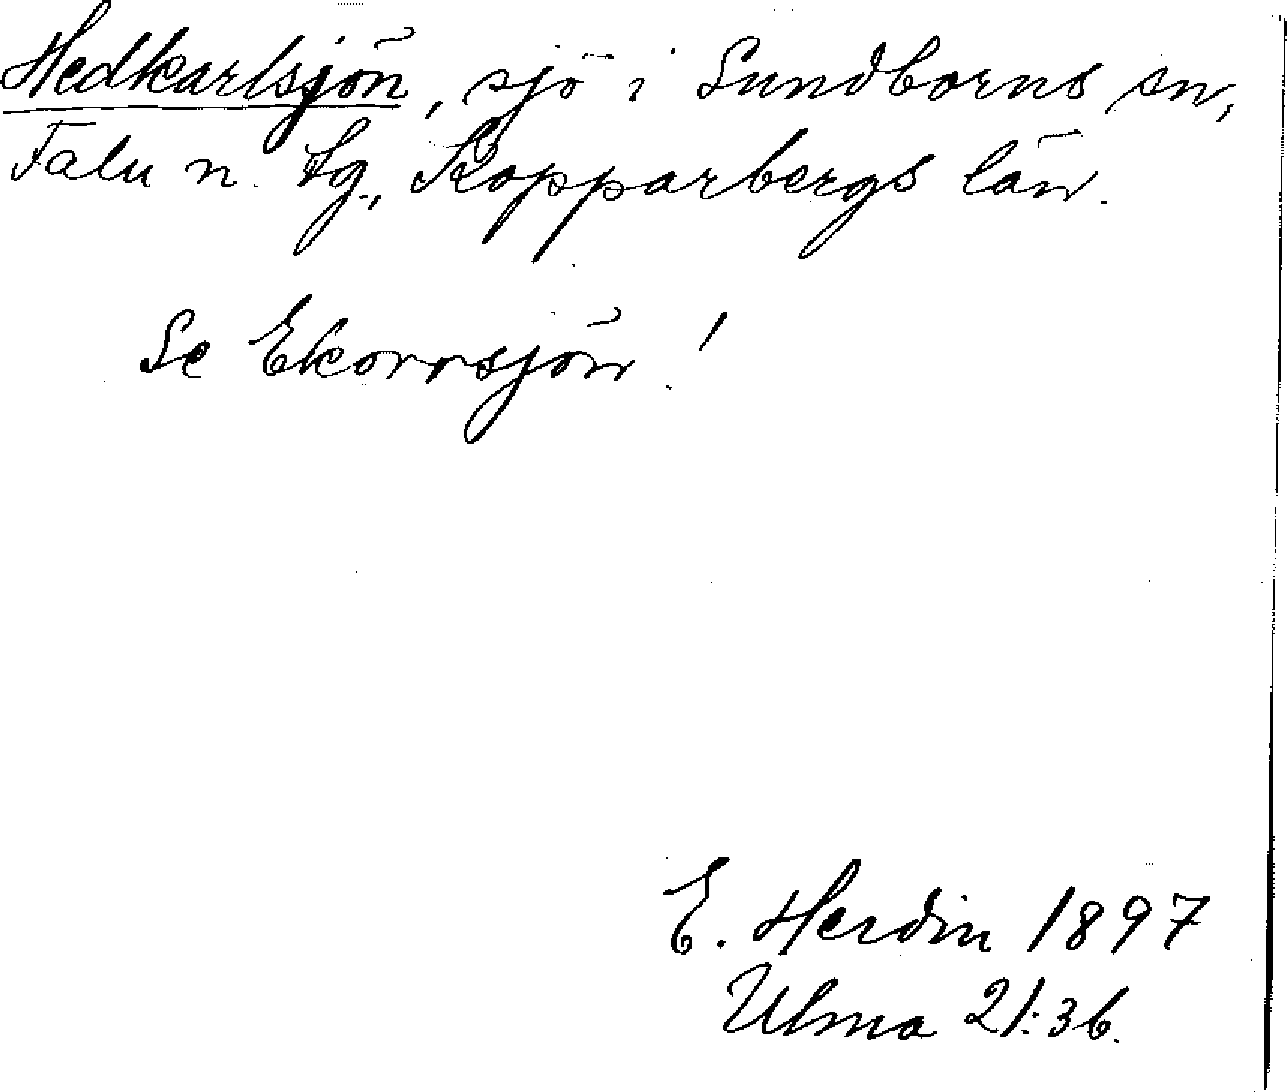 Hedkarlsjön, sjö i Sundborns sn,
Falu n. tg., Kopparbergs län.
Se Ekorrsjön!
E. Herdin 1897
Ulma 21:36.